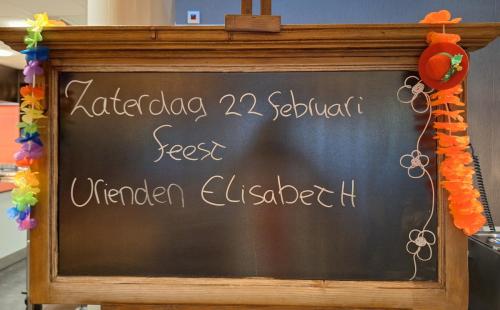 Zaterdag 22 februari
feest
Vrienden Elisabeth